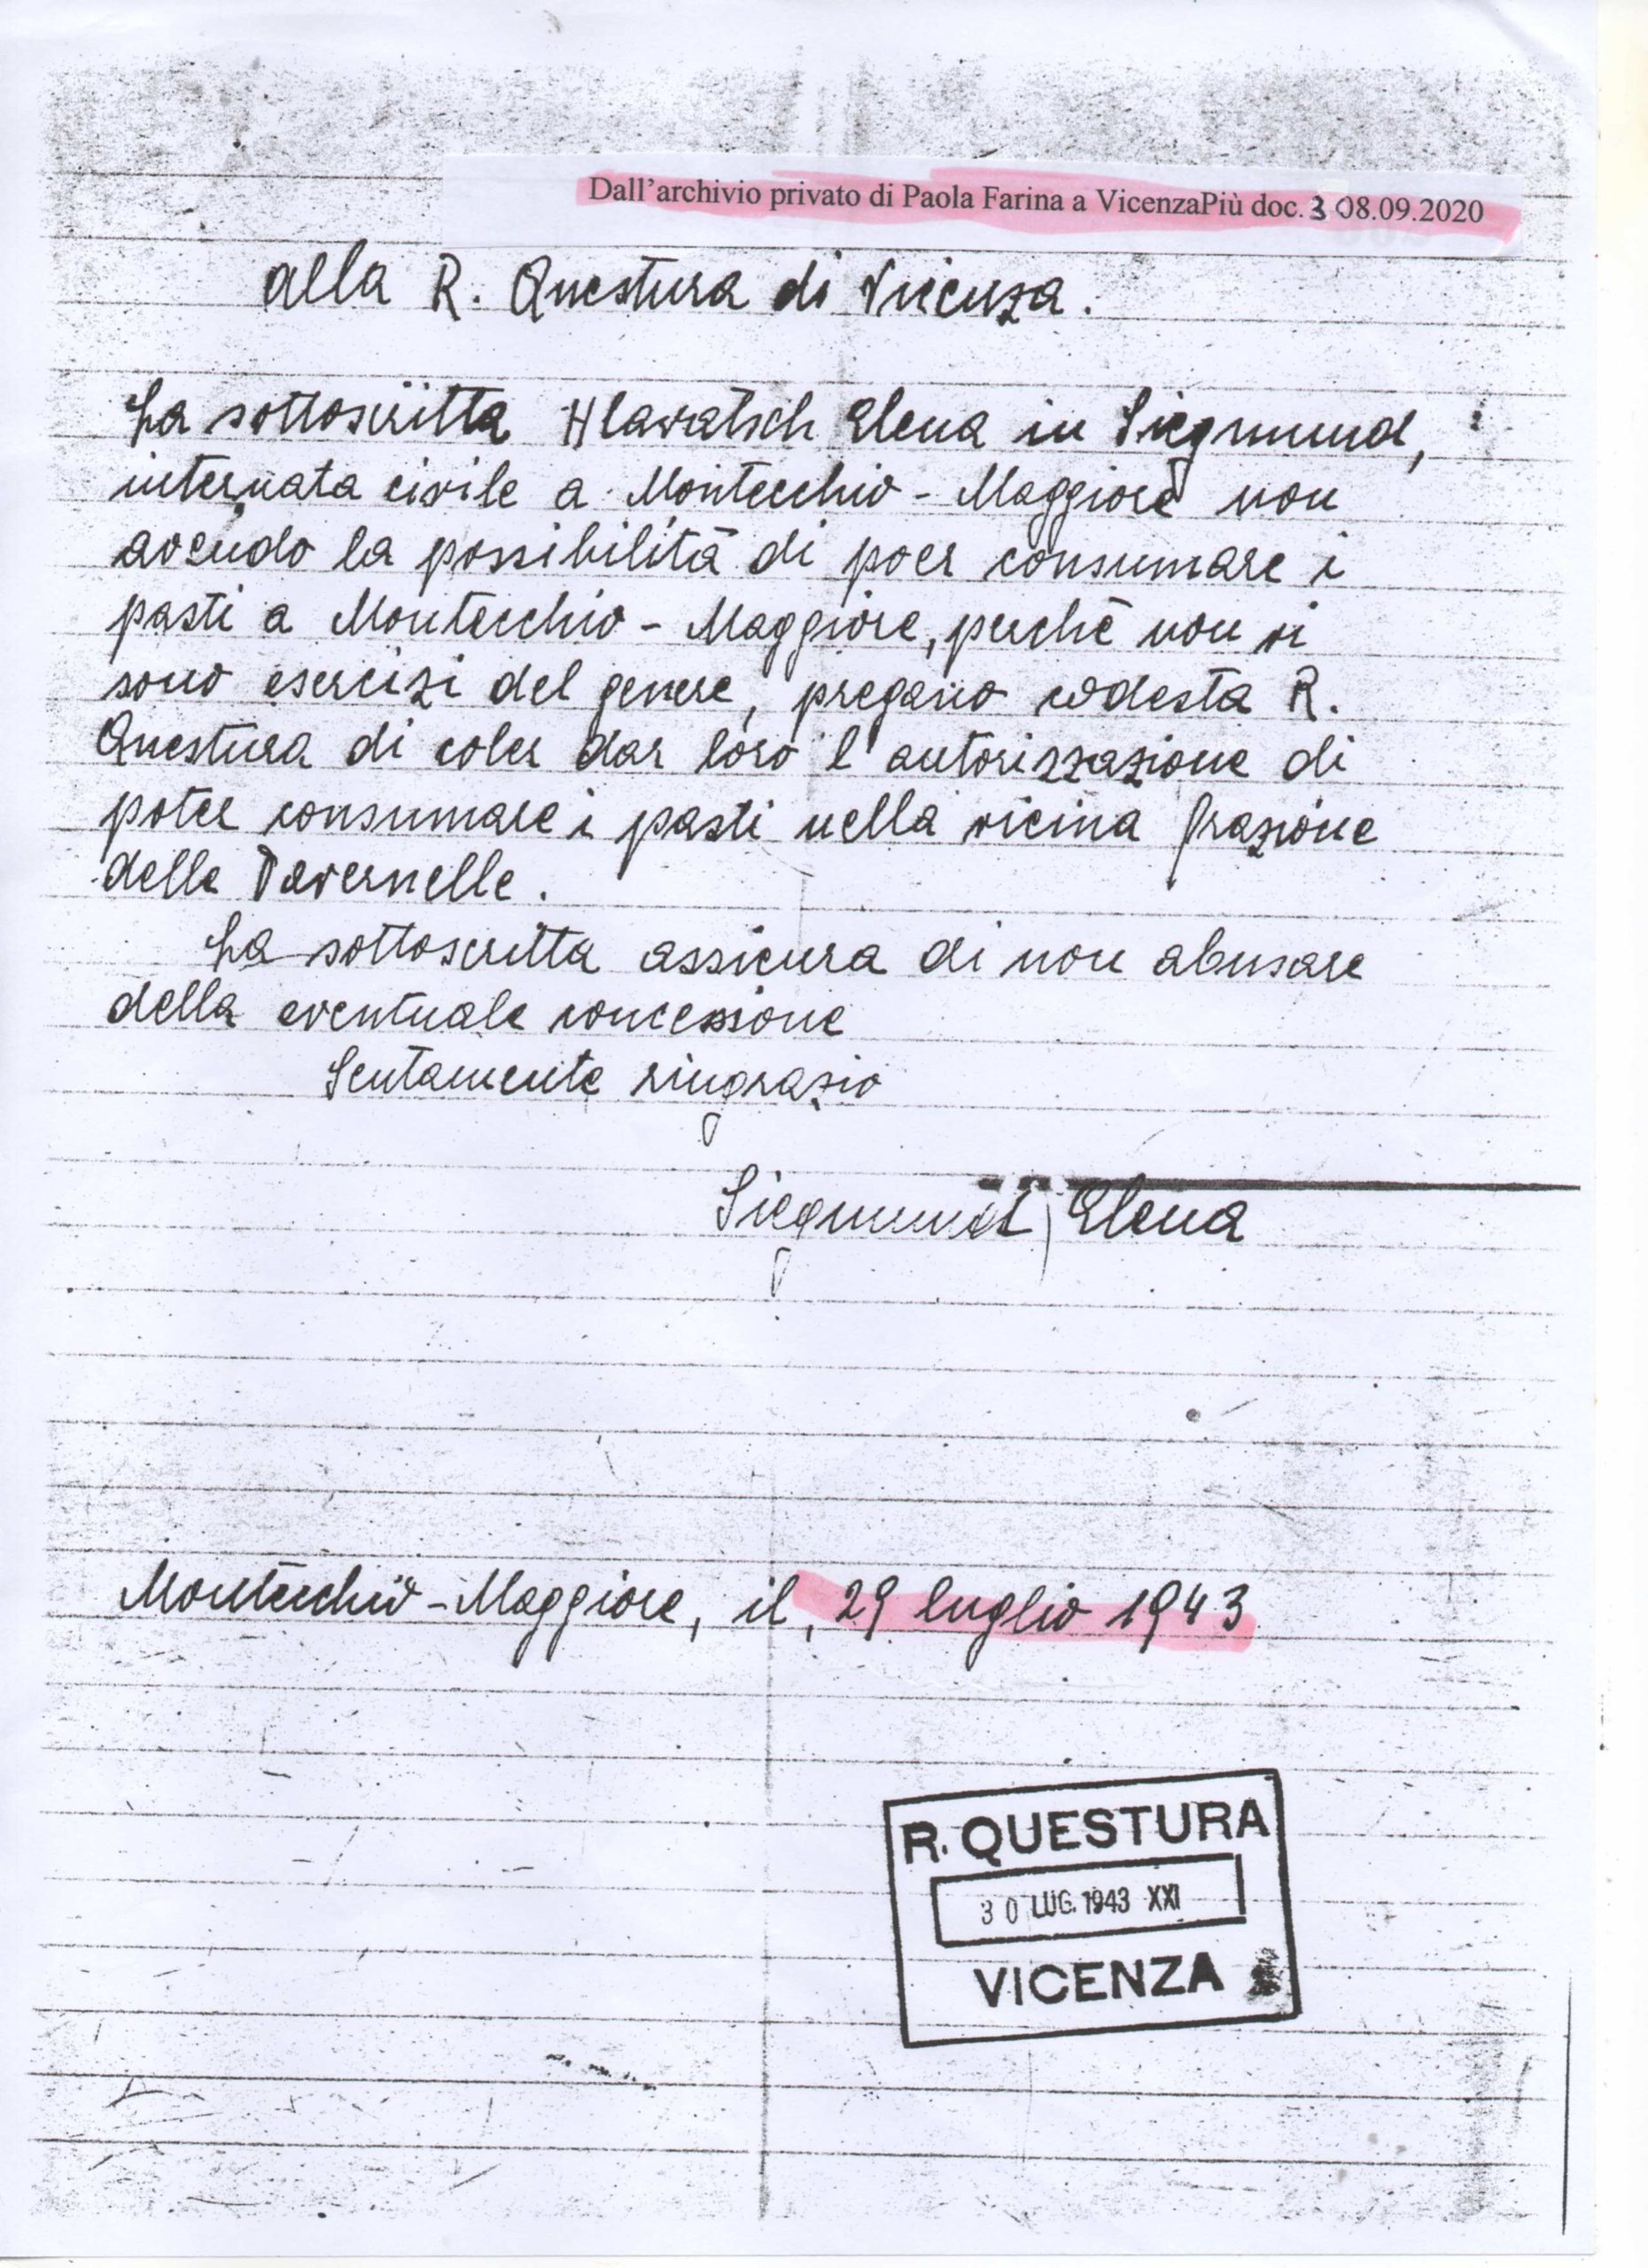 Dall'archivio privato di Paola Farina a VicenzaPiù doc. 3 08.09.2020
alla R. Questura di Vicenza.
La sottoscritta Hlawatsch Elena in Siegmund,
internata civile a Montecchio - Maggiore non
avendo la possibilità di poer consumare i
pasti a Montecchio - Maggiore, perchè non vi
sono esercizi del genere, pregano codesta R.
Questura di voler dar loro l'autorizzazione di
poter consumare i pasti nella vicina frazione
delle Tavernelle.
La sottoscritta assicura di non abusare
della eventuale concessione
Sentamente ringrazio
Siegmund Elena
Montecchio - Maggiore, il, 29 luglio 1943
R. QUESTURA
30 LUG. 1943 XXI
VICENZA